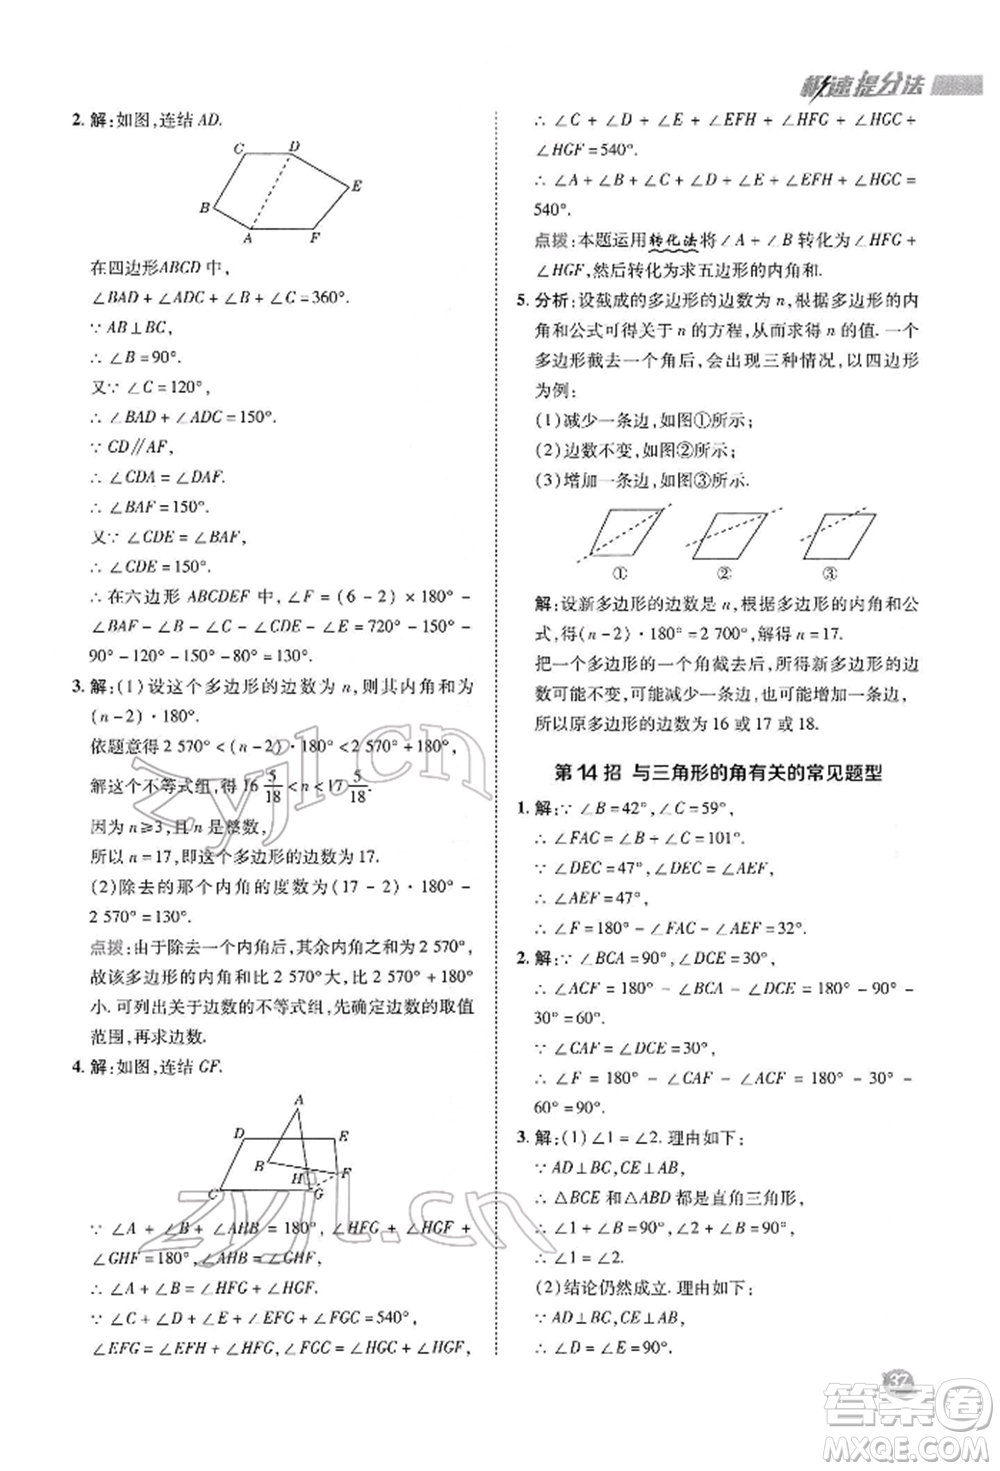 极速提分法
2. 解:如图,连结 AD.
C D
E
B
A F
在四边形ABCD 中,
∠BAD + ∠ADC + ∠B + ∠C = 360°.
∵ AB⊥BC,
∴ ∠B = 90°.
又∵ ∠C = 120°,
∴ ∠BAD + ∠ADC = 150°.
∵ CD∥AF,
∴ ∠CDA = ∠DAF.
∴ ∠BAF = 150°.
又∵ ∠CDE = ∠BAF,
∴ ∠CDE = 150°.
∴ 在六边形 ABCDEF 中, ∠F = (6 - 2) × 180° -
∠BAF - ∠B - ∠C - ∠CDE - ∠E = 720° - 150° -
90° - 120° - 150° - 80° = 130°.
3. 解:(1)设这个多边形的边数为 n,则其内角和为
(n-2)·180°.
依题意得 2 570° < (n-2)·180° < 2 570° + 180°,
解这个不等式组,得 16 5/18 < n < 17 5/18.
因为 n≥3,且 n 是整数,
所以 n = 17,即这个多边形的边数为 17.
(2)除去的那个内角的度数为(17-2)·180° -
2 570° = 130°.
点拨:由于除去一个内角后,其余内角之和为 2 570°,
故该多边形的内角和比 2 570°大,比 2 570° + 180°
小. 可列出关于边数的不等式组,先确定边数的取值
范围,再求边数.
4. 解:如图,连结 GF.
A
D E
B
H F
C G
∵ ∠A + ∠B + ∠AHB = 180°, ∠HFG + ∠HGF +
∠GHF = 180°, ∠AHB = ∠GHF,
∴ ∠A + ∠B = ∠HFG + ∠HGF.
∵ ∠C + ∠D + ∠E + ∠EFG + ∠FGC = 540°,
∠EFG = ∠EFH + ∠HFG, ∠FGC = ∠HGC + ∠HGF,
∴ ∠C + ∠D + ∠E + ∠EFH + ∠HFG + ∠HGC +
∠HGF = 540°.
∴ ∠A + ∠B + ∠C + ∠D + ∠E + ∠EFH + ∠HGC =
540°.
点拨:本题运用转化法将∠A + ∠B 转化为∠HFG +
∠HGF,然后转化为求五边形的内角和.
5. 分析:设截成的多边形的边数为 n,根据多边形的内
角和公式可得关于 n 的方程,从而求得 n 的值. 一个
多边形截去一个角后,会出现三种情况,以四边形
为例:
(1)减少一条边,如图①所示;
(2)边数不变,如图②所示;
(3)增加一条边,如图③所示.
① ② ③
解:设新多边形的边数是 n,根据多边形的内角和公
式,得(n-2)·180° = 2 700°,解得 n = 17.
把一个多边形的一个角截去后,所得新多边形的边
数可能不变,可能减少一条边,也可能增加一条边,
所以原多边形的边数为 16 或 17 或 18.
第 14 招 与三角形的角有关的常见题型
1. 解:∵ ∠B = 42°, ∠C = 59°,
∴ ∠FAC = ∠B + ∠C = 101°.
∵ ∠DEC = 47°, ∠DEC = ∠AEF,
∴ ∠AEF = 47°,
∴ ∠F = 180° - ∠FAC - ∠AEF = 32°.
2. 解:∵ ∠BCA = 90°, ∠DCE = 30°,
∴ ∠ACF = 180° - ∠BCA - ∠DCE = 180° - 90° -
30° = 60°.
∵ ∠CAF = ∠DCE = 30°,
∴ ∠F = 180° - ∠CAF - ∠ACF = 180° - 30° -
60° = 90°.
3. 解:(1)∠1 = ∠2. 理由如下:
∵ AD⊥BC,CE⊥AB,
∴ △BCE 和△ABD 都是直角三角形,
∴ ∠1 + ∠B = 90°, ∠2 + ∠B = 90°,
∴ ∠1 = ∠2.
(2)结论仍然成立. 理由如下:
∵ AD⊥BC,CE⊥AB,
∴ ∠D = ∠E = 90°.
37
zyjl.cn
zyjl.cn
答案圈
MXQE.COM